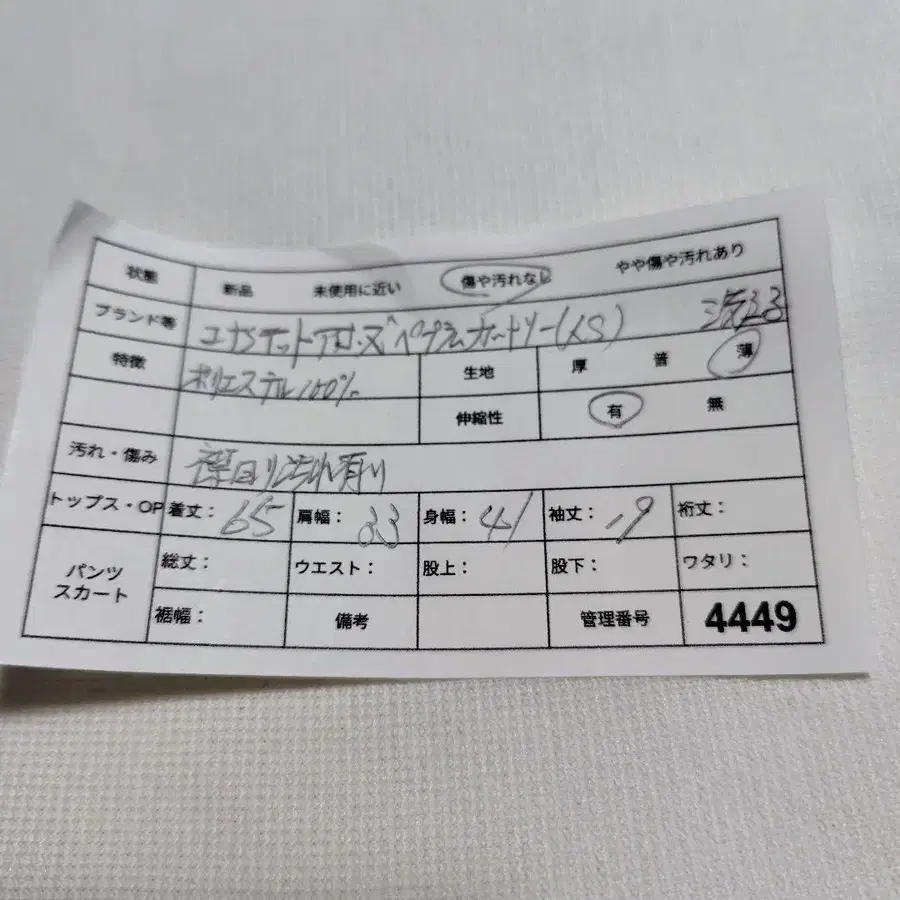 状態 新品 未使用に近い 傷や汚れなし やや傷や汚れあり
ブランド等 ユナイテットアローズ ペプラムカットソー(XS)
特徴 ポリエステル100% 生地 厚 普 薄
伸縮性 有 無
汚れ・傷み 襟回りに汚れ有り
トップス・OP 着丈: 65 肩幅: 33 身幅: 41 袖丈: 19 裄丈:
パンツ スカート 総丈: ウエスト: 股上: 股下: ワタリ:
裾幅: 備考 管理番号 4449